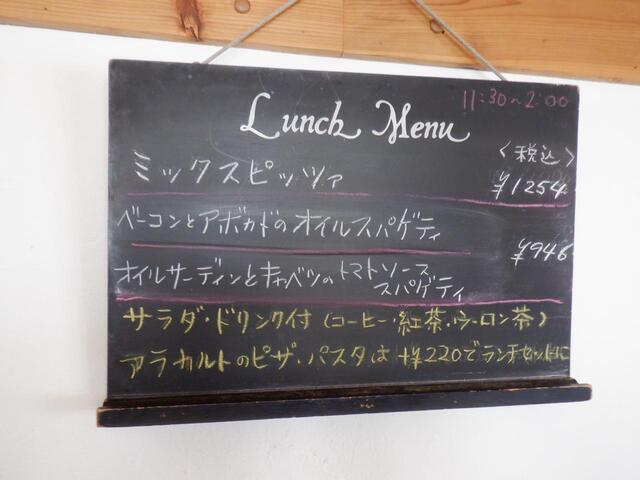 11:30～2:00
Lunch Menu
〈税込〉
ミックスピッツァ ¥1254
ベーコンとアボカドのオイルスパゲティ
¥946
オイルサーディンとキャベツのトマトソース
スパゲティ
サラダ・ドリンク付(コーヒー・紅茶・ウーロン茶)
アラカルトのピザ・パスタは+¥220でランチセットに